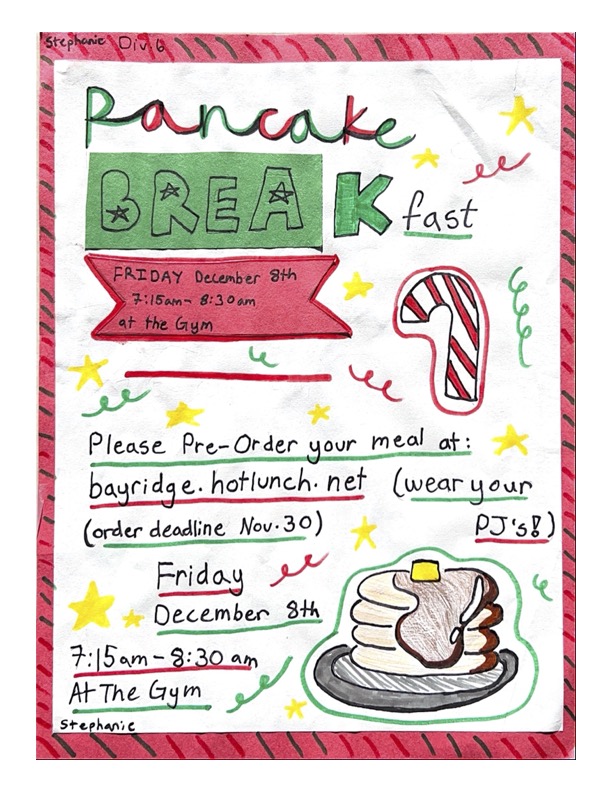 Stephanie Div.6
Pancake
BREAKfast
FRIDAY December 8th
7:15am- 8:30am
at the Gym
Please Pre-Order your meal at:
bayridge.hotlunch.net (wear your
(order deadline Nov.30) PJ's!)
Friday
December 8th
7:15am-8:30 am
At The Gym
Stephanie